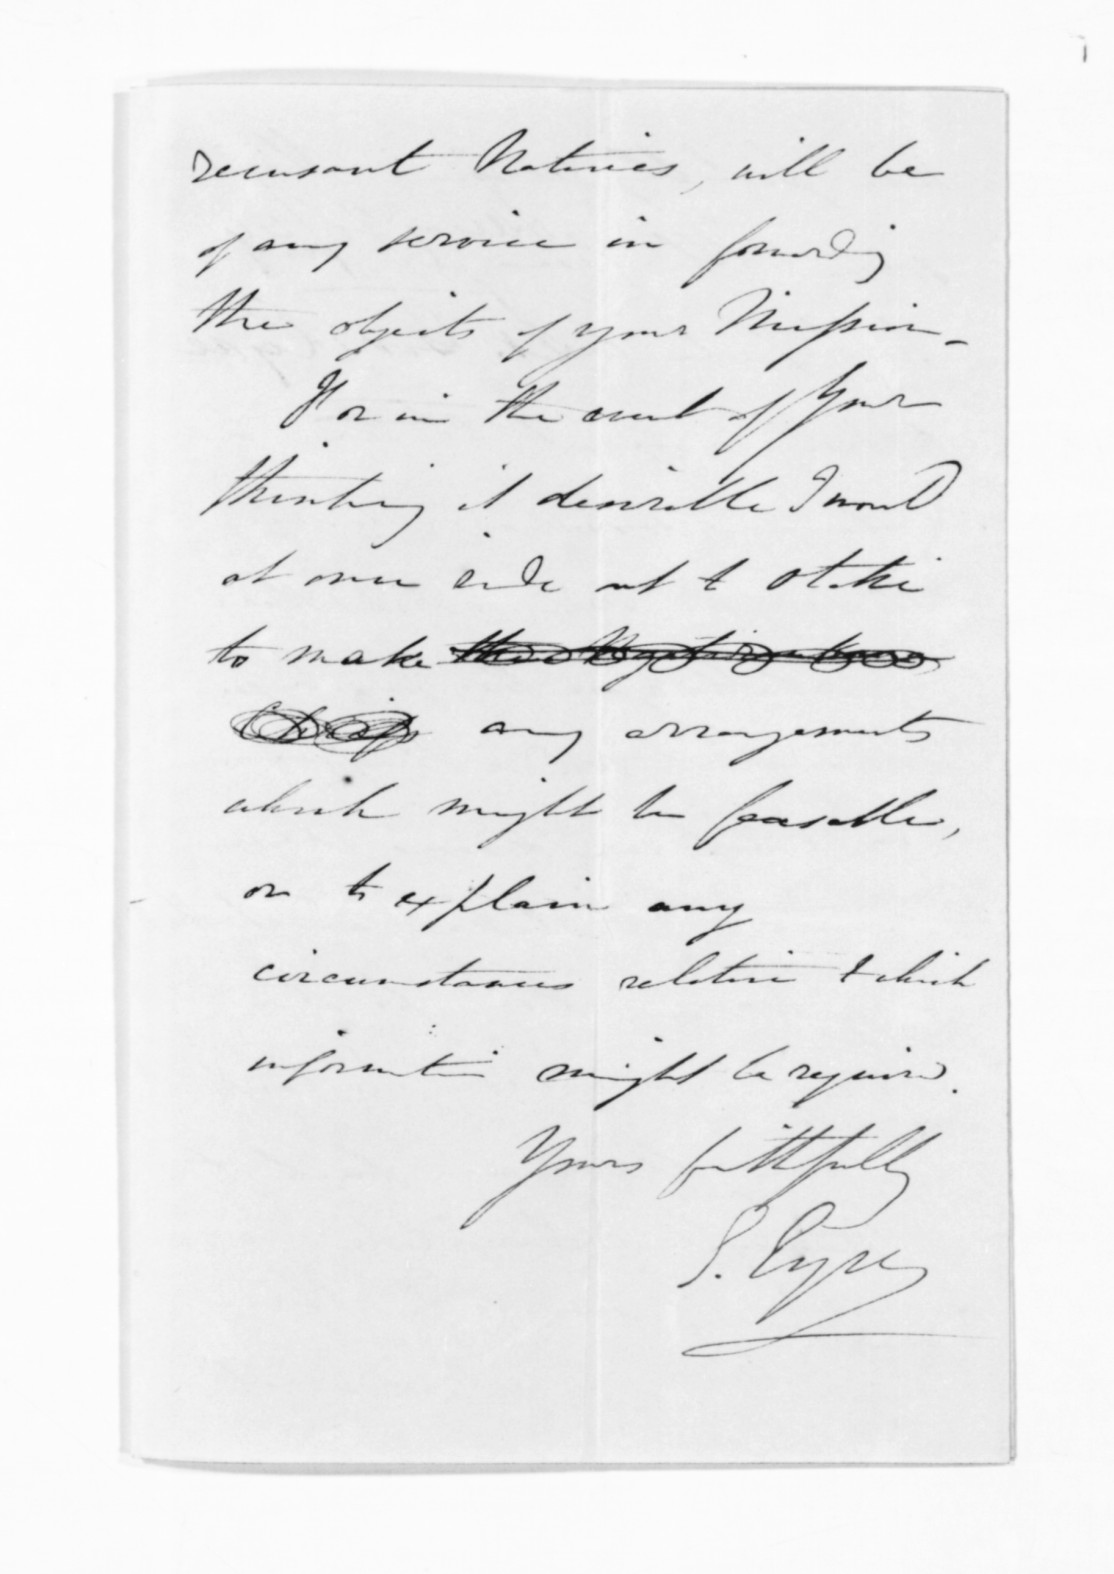 recusant Natives, will be
of any service in forwarding
the objects of your Mission -
If so in the event of your
thinking it desirable I would
at once ride out to Otaki
to make
any arrangements
which might be feasable,
or to explain any
circumstances relative to which
information might be required.
Yours faithfully
S. Eyre